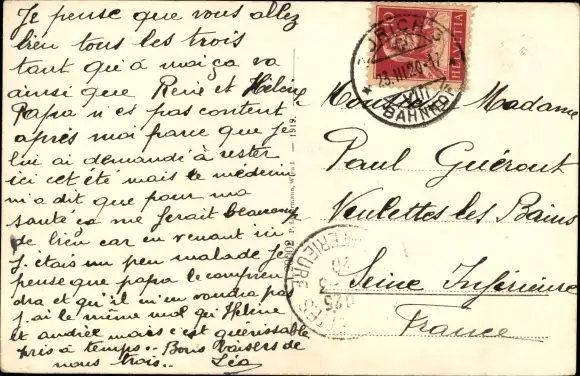 Je pense que vous allez
bien tous les trois
tant qu'à moi ça va
ainsi que René et Héloise
Papa n'est pas content
après moi parce que je
lui ai demandé à rester
ici cet été mais le médecin
m'a dit que pour ma
santé ça me ferait beaucoup
de bien car en venant ici
j'étais un peu malade je
pense que papa le compren
dra et qu'il m'en voudra pas
j'ai le même mal qu'Hélène
et andrée mais c'est guérissable
pris à temps.. Bons baisers de
nous trois.. Léa
1919.
HELVETIA
ZÜRICH
23.III.20.-17
VIII
BAHNHOF
Madame
Paul Guérout
Veulettes les Bains
Seine Inférieure
France
INFERIEURE